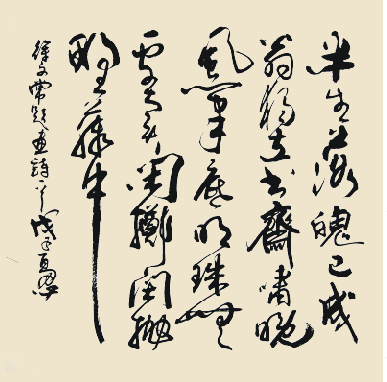 半生落魄已成
翁独立书斋啸晚
风笔底明珠无
处卖闲掷闲抛
野藤中
徐文长题画诗一首 戊子夏